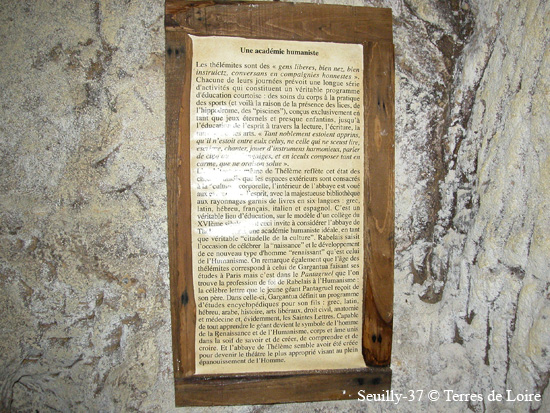 Une académie humaniste
Les thélémites sont des « gens liberes, bien nez, bien
instruictz, conversans en compaignies honnestes ».
Chacune de leurs journées prévoit une longue série
d'activités qui constituent un véritable programme
d'éducation courtoise : des soins du corps à la pratique
des sports (et voilà la raison de la présence des lices, de
l'hippodrome, des "piscines"), conçus exclusivement en
tant que jeux éternels et presque enfantins, jusqu'à
l'éducation de l'esprit à travers la lecture, l'écriture, la
les arts. « Tant noblement estoient apprins,
qu'il n'estoit entre eulx celuy, ne celle qui ne sceust lire,
escripre, chanter, jouer d'instrumens harmonieux, parler
de cinq et en iceulx composer tant en
carme, que ne oraison solue ».
de Thélème reflète cet état des
que les espaces extérieurs sont consacrés
à la corporelle, l'intérieur de l'abbaye est voué
esprit, avec la majestueuse bibliothèque
aux rayonnages garnis de livres en six langues : grec,
latin, hébreu, français, italien et espagnol. C'est un
véritable lieu d'éducation, sur le modèle d'un collège du
XVIème ceci invite à considérer l'abbaye de
une académie humaniste idéale, en tant
que véritable "citadelle de la culture". Rabelais saisit
l'occasion de célébrer la "naissance" et le développement
de ce nouveau type d'homme "renaissant" qu'est celui
de l'Humanisme. On remarque également que l'âge des
thélémites correspond à celui de Gargantua faisant ses
études à Paris mais c'est dans le Pantagruel que l'on
trouve la profession de foi de Rabelais à l'Humanisme :
la célèbre lettre que le jeune géant Pantagruel reçoit de
son père. Dans celle-ci, Gargantua définit un programme
d'études encyclopédiques pour son fils : grec, latin,
hébreu, arabe, histoire, arts libéraux, droit civil, anatomie
et médecine et, évidemment, les Saintes Lettres. Capable
de tout apprendre le géant devient le symbole de l'homme
de la Renaissance et de l'Humanisme, corps et âme unis
dans la soif de savoir et de créer, de comprendre et de
croire. Et l'abbaye de Thélème semble avoir été créée
pour devenir le théâtre le plus approprié visant au plein
épanouissement de l'Homme.
Seuilly-37 © Terres de Loire